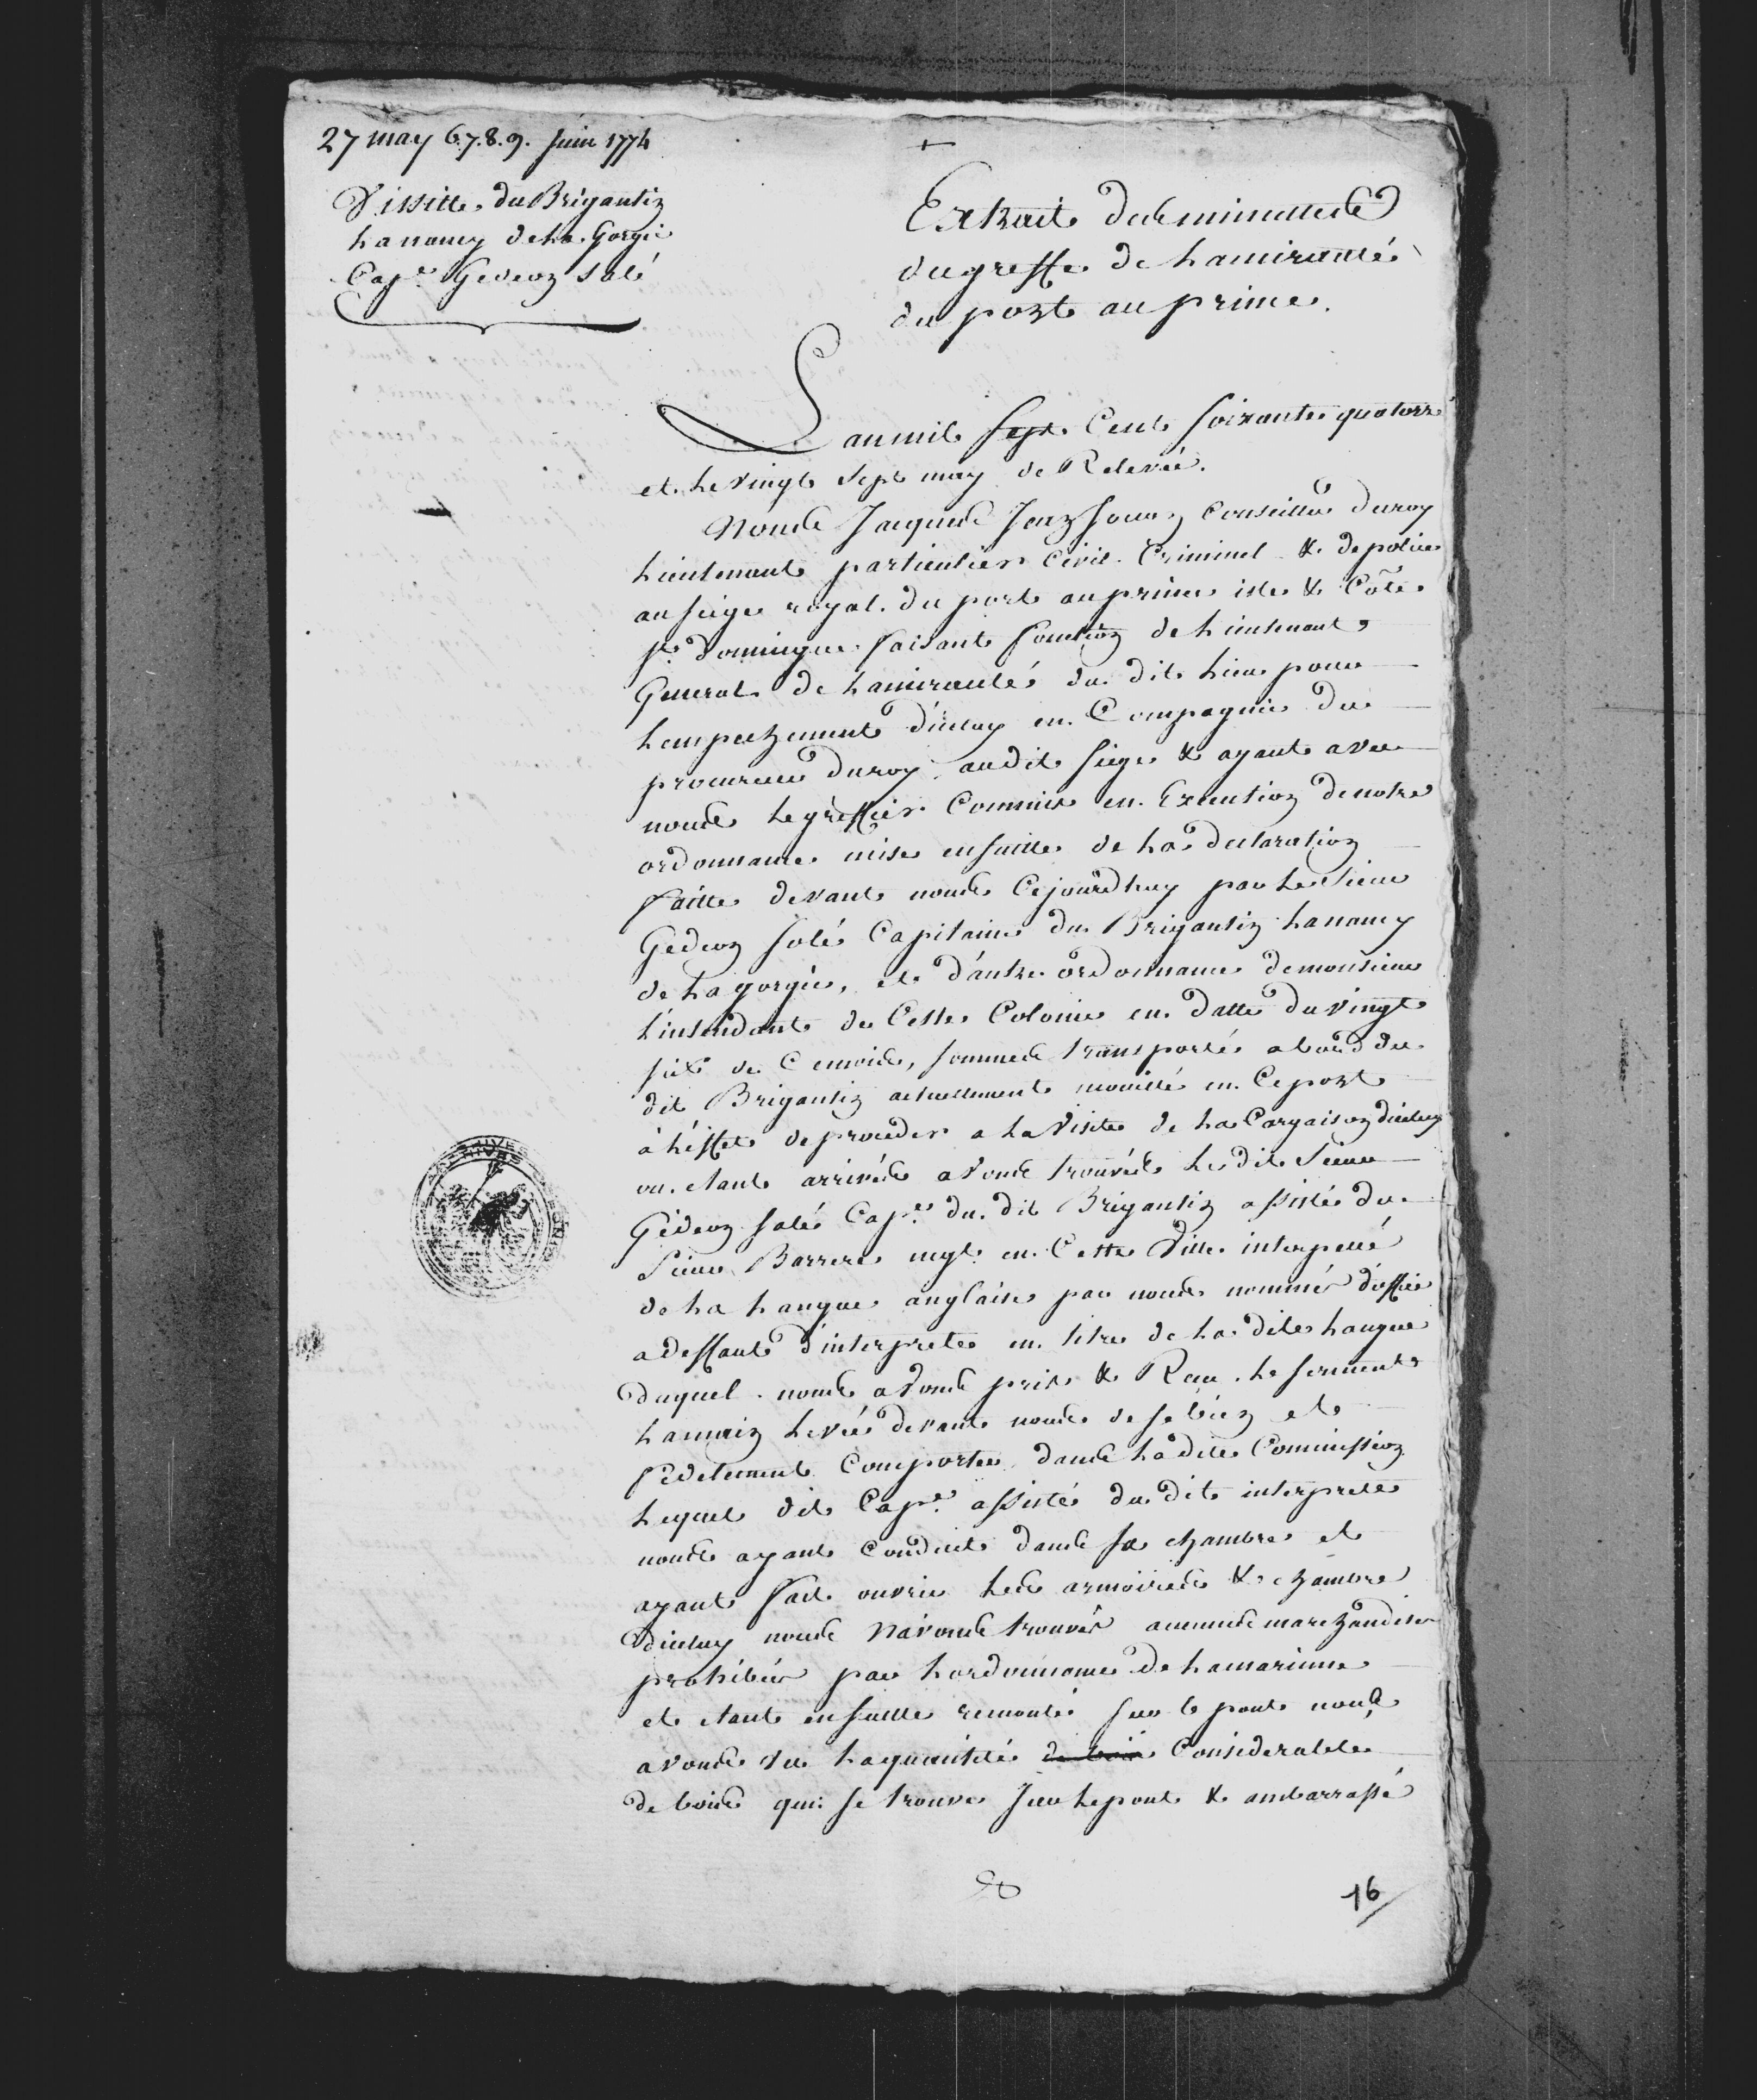 27 may 6.7.8.9. Juin 1774
Vissitte du Brigantin
La nancy de La Gorgie
Cap.e Gedeon Solé
Extrait des minuttes
du greffe de Lamirauté
du port au prince.
L'an mil sept Cent soixante quatorze
et Le vingt sept may de Relevée.
Nous Jacques Conseiller du roy
Lieutenant particulier Civil Criminel & de police
au siege royal du port au prince isle & Côte
St domingue faisant fonction de Lieutenant
General de Lamirauté du dit Lieu pour
Lempechement d'iceluy en Compagnie du
procureur du roy audit siege & ayant avec
nous Le greffier Commis en Execution de notre
ordonnance mise ensuitte de La declaration
faitte devant nous Cejourdhuy par Le sieur
Gedeon Solé Capitaine du Brigantin La nancy
de La gorgie, et d'autre ordonnance de monsieur
L'intendant de Cette Colonie en datte du vingt
six de Ce mois, sommes transportés abord du
dit Brigantin actuellement mouillé en Ce port
à L'effet de proceder a La Visite de La Cargaison d'iceluy
ou etant arrivés avons trouvés Le dit Sieur
Gédeon Solé Cap.e du dit Brigantin assisté du
Sieur Barrere negt. en Cette Ville interpellé
de La Langue anglaise par nous nommé d'office
a deffaut d'interprete en titre de La dite Langue
duquel nous avons pris & Recu Le serment
La main Levée devant nous de se bien et
fidelement Comporter dans La dite Commission
Lequel dit Cap.e assisté du dit interprete
nous ayant Conduit dans sa chambre et
ayant fait ouvrir Les armoires & chambre
d'iceluy nous n'avons trouvés aucunes marchandises
prohibées par Lordonnance de La marinne
et etant ensuitte remonté sur le pont nous
avons vu La quantité de bois Considerable
de bois qui se trouve sur Le pont & ambarrassé
16